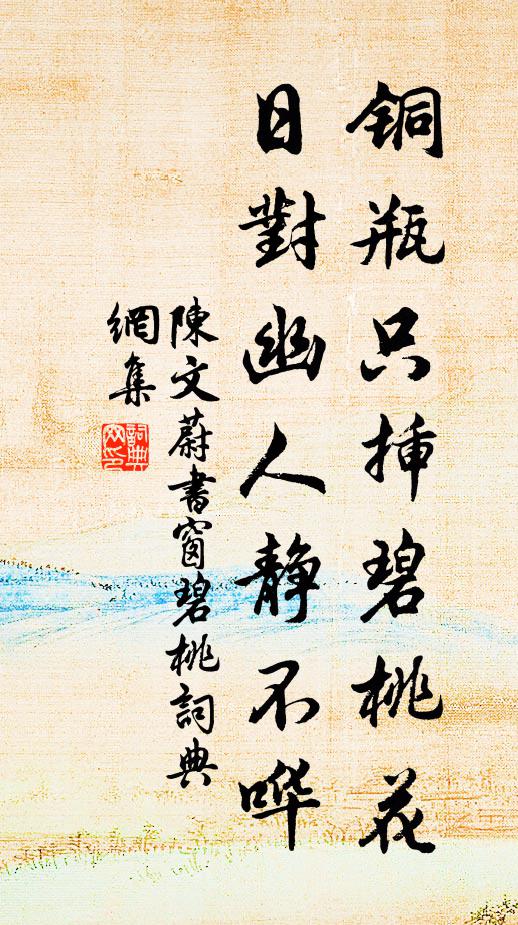 铜瓶只揷碧桃花
日對幽人静不哗
陳文蔚書窗碧桃詞典
網集
詞典